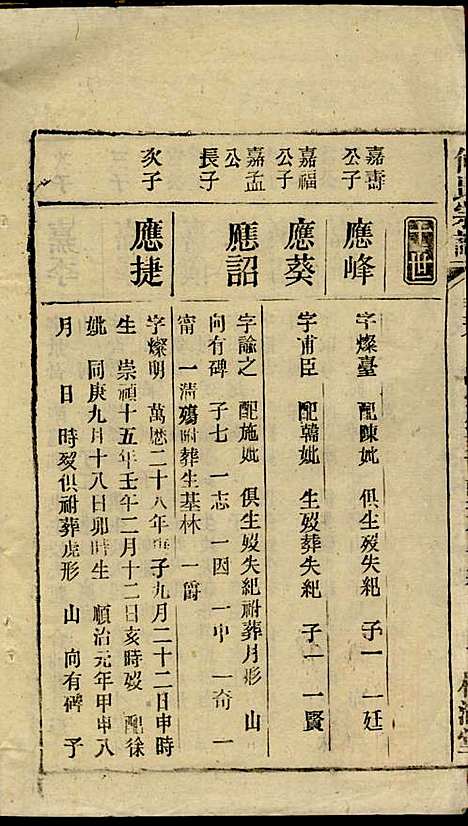 十世
嘉壽公子
應峰
字燦臺 配陳妣 俱生歿失紀 子一 一廷
嘉福公子
應葵
字甫臣 配韓妣 生歿葬失紀 子一 一賢
嘉孟公長子
應詔
字諭之 配施妣 俱生歿失紀祔葬月形 山
向有碑 子七 一志 一因 一中 一奇 一
甯 一清殤附葬生基林 一爵
次子
應捷
字燦明 萬歷二十八年庚子九月二十二日申時
生 崇禎十五年壬午二月十二日亥時歿 配徐
妣 同庚九月十八日卯時生 順治元年甲申八
月 日 時歿俱祔葬虎形 山 向有碑 子